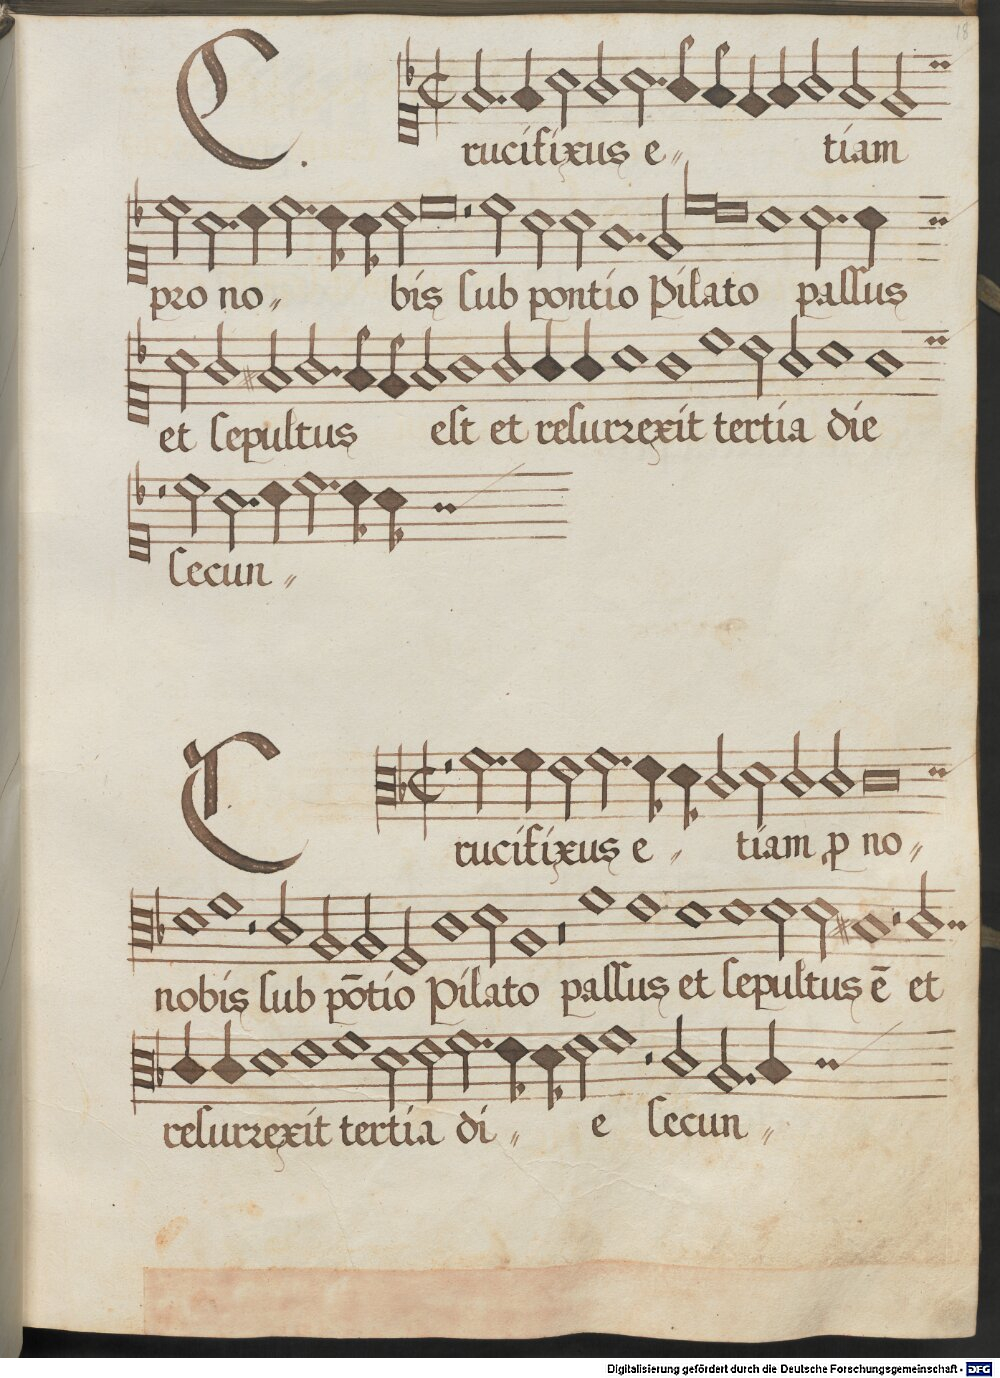 18
Crucifixus e〃 tiam
pro no〃 bis sub pontio Pilato passus
et sepultus est et resurrexit tertia die
secun〃
Crucifixus e〃 tiam ꝑ no〃
nobis sub põtio Pilato passus et sepultus ẽ et
resurrexit tertia di〃 e secun〃
Digitalisierung gefördert durch die Deutsche Forschungsgemeinschaft - DFG